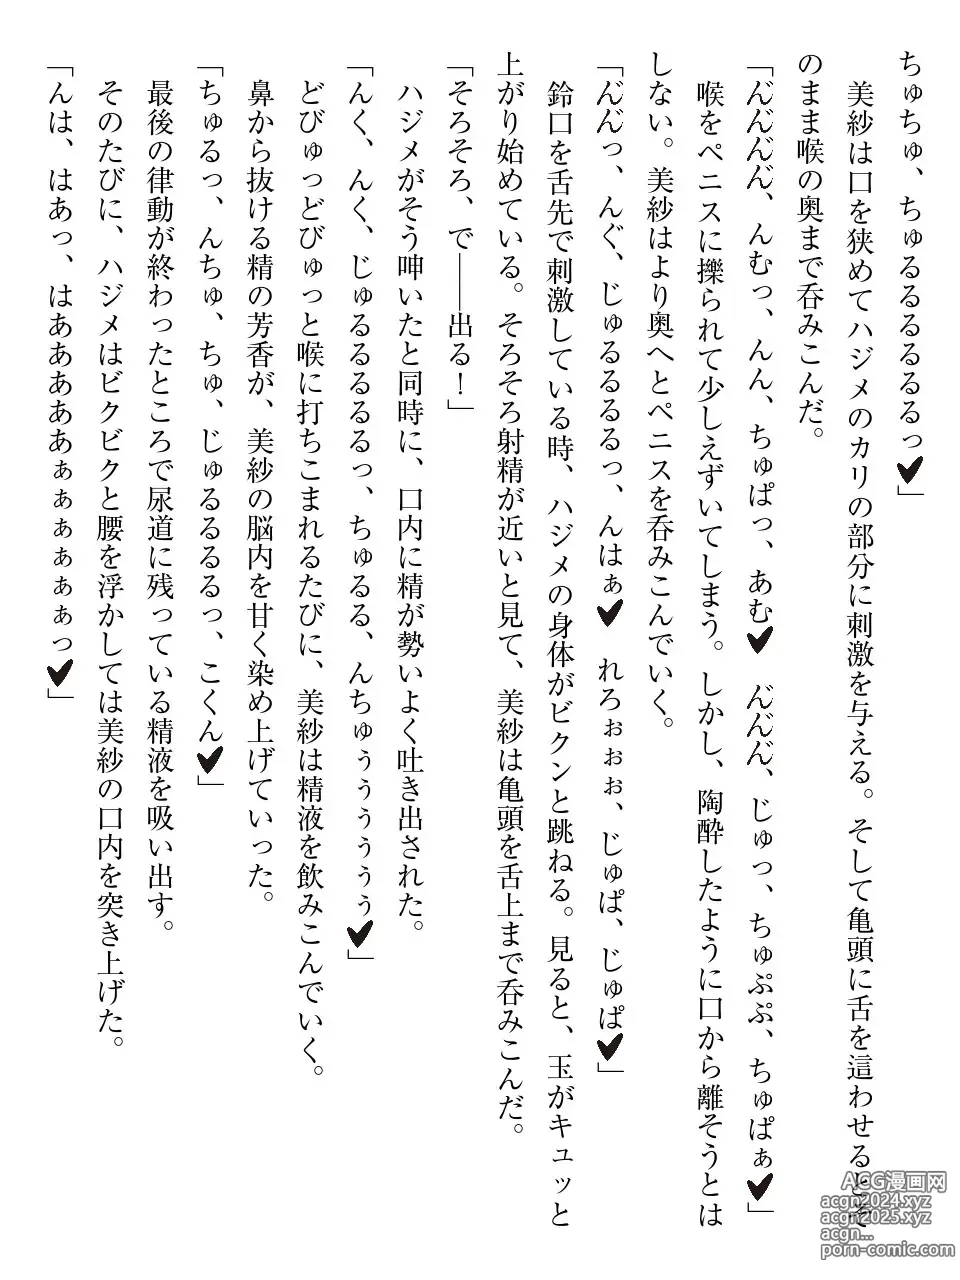 ちゅちゅ、ちゅるるるるるるっ♥」
　美紗は口を狭めてハジメのカリの部分に刺激を与える。そして亀頭に舌を這わせるとそ
のまま喉の奥まで呑みこんだ。
「ん゛ん゛ん゛ん゛、んむっ、んん、ちゅぱっ、あむ♥　ん゛ん゛ん゛、じゅっ、ちゅぷぷ、ちゅぱぁ♥」
　喉をペニスに擽られて少しえずいてしまう。しかし、陶酔したように口から離そうとは
しない。美紗はより奥へとペニスを呑みこんでいく。
「ん゛ん゛っ、んぐ、じゅるるるるっ、んはぁ♥　れろぉぉぉ、じゅぱ、じゅぱ♥」
　鈴口を舌先で刺激している時、ハジメの身体がビクンと跳ねる。見ると、玉がキュッと
上がり始めている。そろそろ射精が近いと見て、美紗は亀頭を舌上まで呑みこんだ。
「そろそろ、で――出る！」
　ハジメがそう呻いたと同時に、口内に精が勢いよく吐き出された。
「んく、んく、じゅるるるるるっ、ちゅるる、んちゅぅぅぅぅぅぅ♥」
　どびゅっどびゅっと喉に打ちこまれるたびに、美紗は精液を飲みこんでいく。
　鼻から抜ける精の芳香が、美紗の脳内を甘く染め上げていった。
「ちゅるっ、んちゅ、ちゅ、じゅるるるるっ、こくん♥」
　最後の律動が終わったところで尿道に残っている精液を吸い出す。
　そのたびに、ハジメはビクビクと腰を浮かしては美紗の口内を突き上げた。
「んは、はあっ、はああああああぁぁぁぁぁぁっ♥」
ACG漫画网
acgn2024.xyz
acgn2025.xyz
acgn...
porn-comic.com